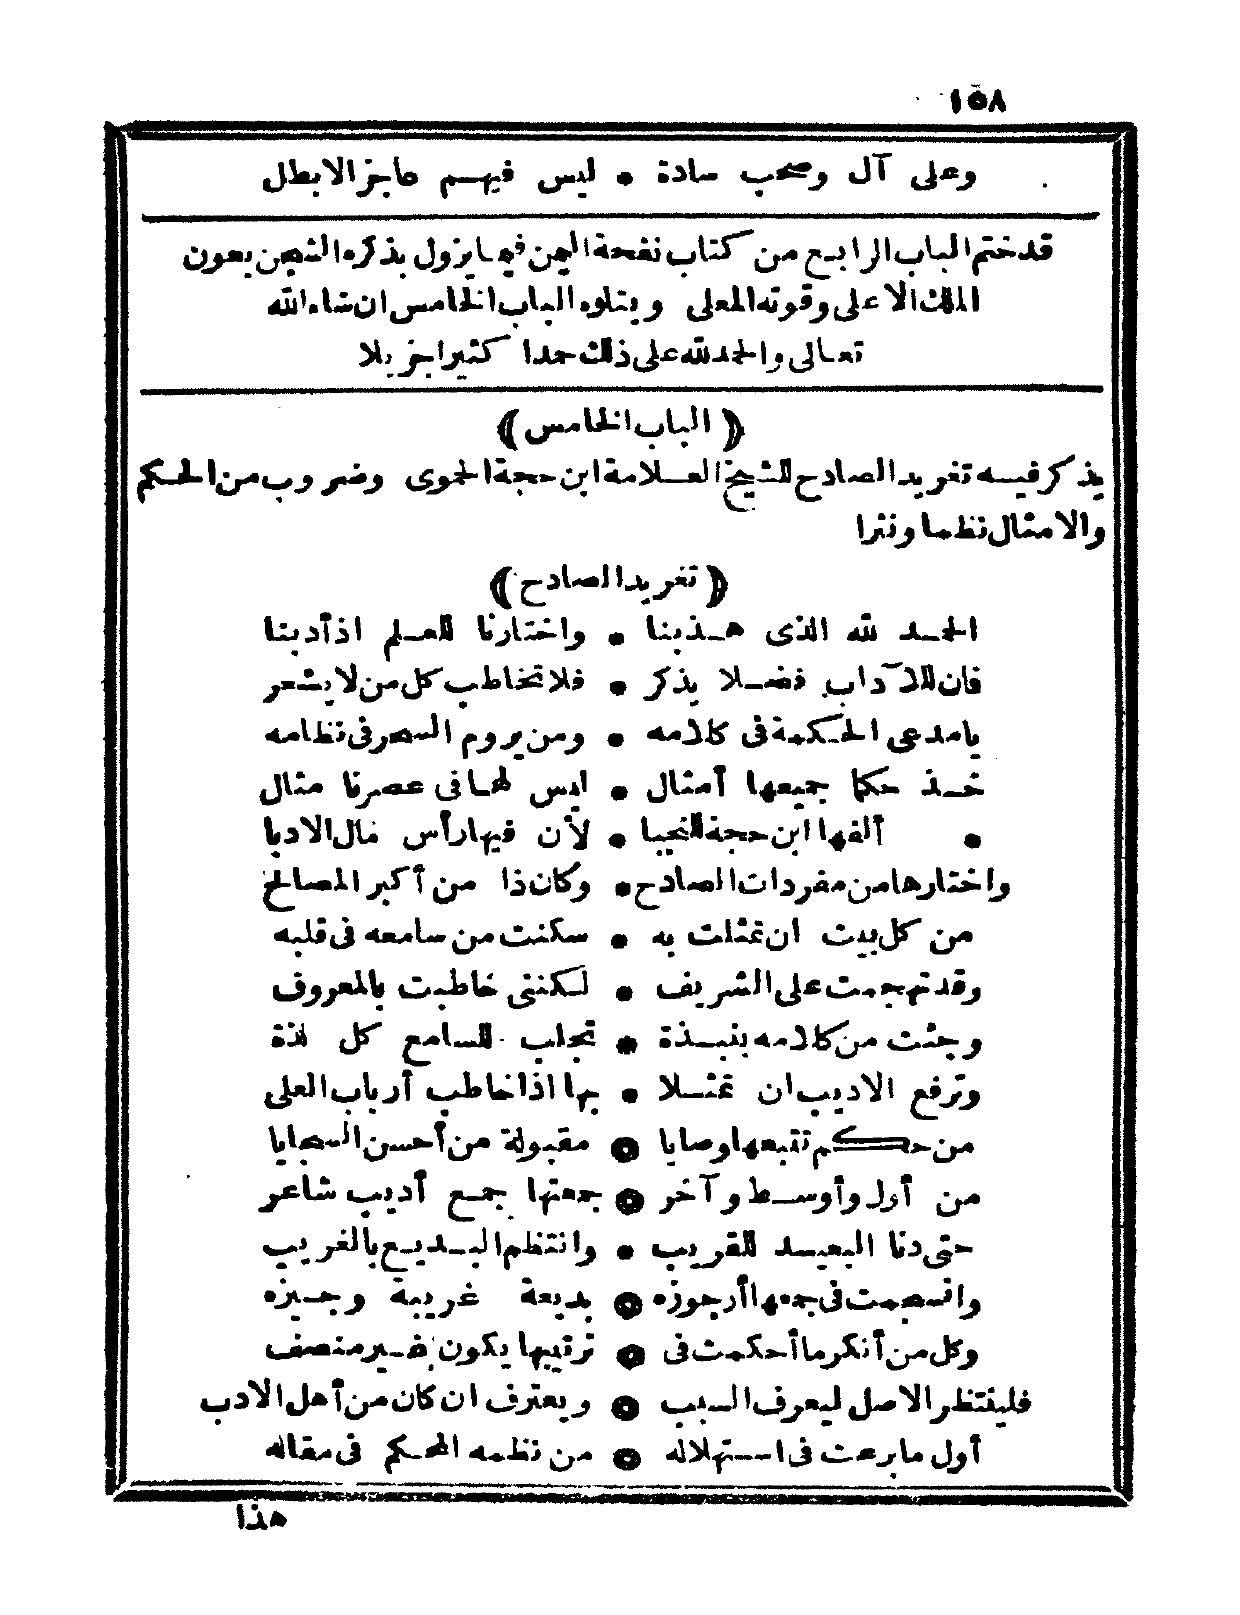 ١٥٨
وعلى آل وصحب سادة • ليس فيهم عاجز الابطل
قدختم الباب الرابع من كتاب نفحة اليمن فيما يزول بذكره الشجن بعون
الملك الاعلى وقوته المعلى ويتلوه الباب الخامس ان شاء الله
تعالى والحمد لله على ذلك حمدا كثيرا جزيلا
(الباب الخامس)
يذكر فيه تغريد الصادح للشيخ العلامة ابن حجة الحموى وضروب من الحكم
والامثال نظما ونثرا
(تغريد الصادح)
الحمد لله الذى هذبنا • واختارنا للعلم اذ أدبنا
فان للآداب فضلا يذكر • فلا تخاطب كل من لا يشعر
يامدعى الحكمة فى كلامه • ومن يروم السحر فى نظامه
خذ حكما جميعها أمثال • ليس لها فى عصرنا مثال
• ألفها ابن حجة للنجبا • لأن فيها رأس مال الادبا
واختارها من مفردات الصادح • وكان ذا من أكبر المصالح
من كل بيت ان تمثلت به • سكنت من سامعه فى قلبه
وقد تهجمت على الشريف • لكننى خاطبت بالمعروف
وجئت من كلامه بنبذة • تجلب للسامع كل لذة
وترفع الاديب ان تمثلا • بها اذا خاطب أرباب العلى
من حكم تتبعها وصايا • مقبولة من أحسن السجايا
من أول وأوسط وآخر • جمعتها جمع أديب شاعر
حتى دنا البعيد للقريب • وانتظم البديع بالغريب
وانسجمت فى جمعها أرجوزه • بديعة غريبة وجيزه
وكل من أنكر ما أحكمت فى • ترتيبها يكون غير منصف
فلينتظر الاصل ليعرف السبب • ويعترف ان كان من أهل الادب
أول ما برعت فى استهلاله • من نظمه المحكم فى مقاله
هذا